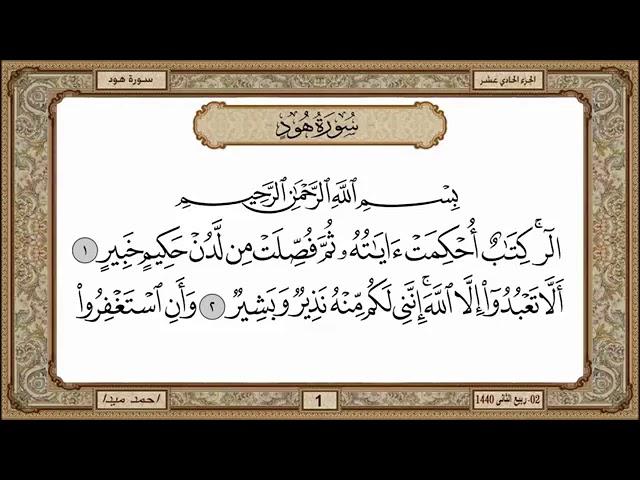 سورة هود
الجزء الحادي عشر
سُورَةُ هُودٍ
بِسْمِ ٱللَّهِ ٱلرَّحْمَٰنِ ٱلرَّحِيمِ
الٓرۚ كِتَٰبٌ أُحْكِمَتْ ءَايَٰتُهُۥ ثُمَّ فُصِّلَتْ مِن لَّدُنْ حَكِيمٍ خَبِيرٍ ١
أَلَّا تَعْبُدُوٓا۟ إِلَّا ٱللَّهَۚ إِنَّنِى لَكُم مِّنْهُ نَذِيرٌ وَبَشِيرٌ ٢ وَأَنِ ٱسْتَغْفِرُوا۟
احمد ميدا
1
02- ربيع الثانى 1440